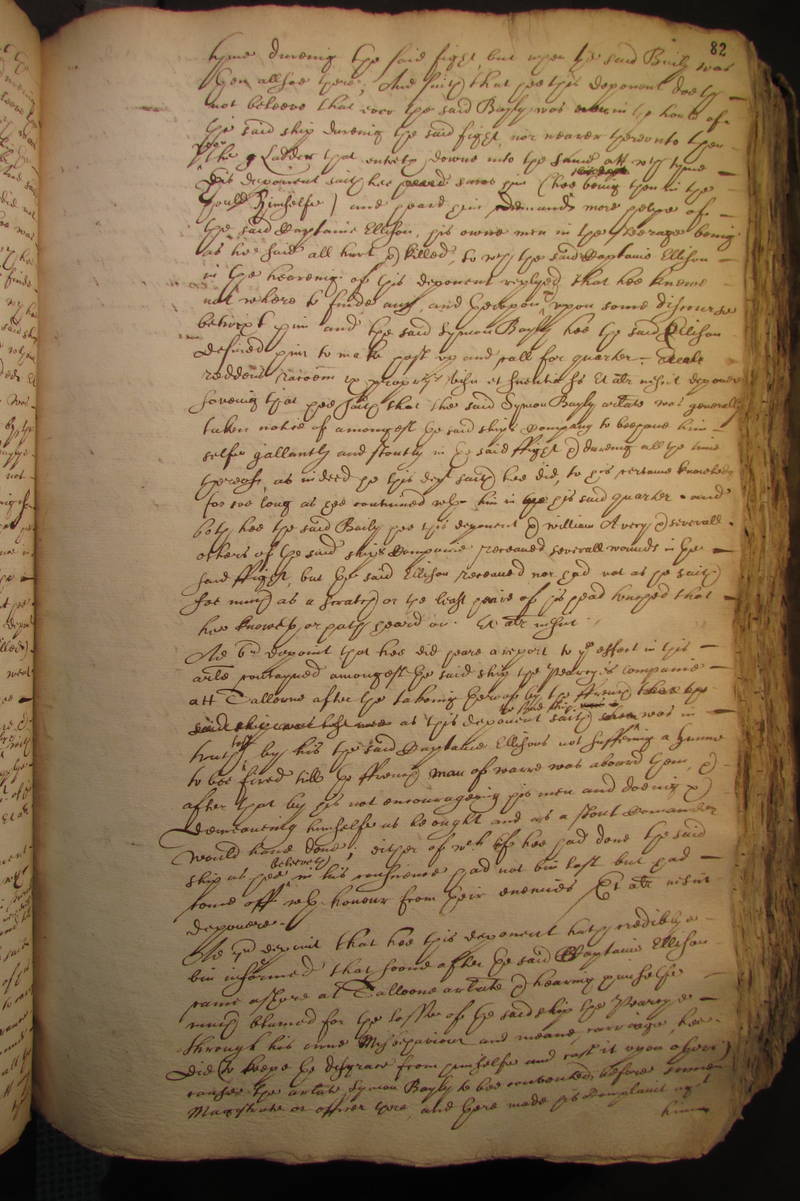 82
tyme dureing the said fight, but when the said Baily was
then allsoe there; And saith that hee this deponent doeth
not beleeve that ever the said Bayly was in the hould of
the said ship dureing the said fight, nor nearer thereunto then
the Ladder that entreth downe into the same att w:ch tyme
this deponent saith hee sawe him (hee being then in the
hould himselfe) and heard him demand more helpe of
the said Captaine Ellison, his owne men in the steerage being
as hee said all hurt & killed, to w:ch the said Captaine Ellison
in the heareing of this deponent replyed that hee knewe
not where to finde any, and thereupon upon some discourse
betwixt him and the said Symon Bayly hee the said Ellison
desired him to make hast up and call for quarter.
reddens rationem ex proprijs visu et scientia sic Et alr nescit deponere
saveing that hee saith that the said Symon Bayly arlate was generally
taken notice of amongest the said ships Company to behave him
selfe gallantly and stoutly in the said ffight & dureing all the time
thereof, as indeed he this dept saith hee did, to his certaine knowledge
for soe long as hee continued w:th him in his said quarter and
both hee the said Baily hee this deponent & William Avery & severall
others of the said ships Companie receaved severall wounds in the
said ffight, but the said Ellison receaved nor had not as he saith
soe much as a scratch or the least haire of his head
hee knoweth or hath heard of. Et alr nescit
Ad 6:m deponit that hee did heare a report to the effect in this
arlate amongest the said ship the Pearcy's companie
att Talloone after the takeing thereof by the ffrench
as this deponent saith was in
truth by his the said Captaine Ellisons not suffering a Gunne
to bee fired till the ffrench man of warre was aboard them, &
after that by his not encourageing his men and doeing &
demeaneing himselfe as hee ought and as a stout Comander
would have done; either of w:ch if hee had done the said
ship as hee beleeveth in his conscience had not bin lost but had
come off w:th honour from their enemies Et alr nescit
deponere.
Ad 7:m deponit that hee this deponent hath credibly
bin informed that soone after the said Captaine Ellison
came ashore at Talloone arlate & heareing himselfe
much blamed for the losse of the said ship the Pearcye
through his owne Misbehaviour and meane carriage, hee
did to keepe the disgrace from himselfe and cast it upon others
cause the arlate Symon Bayly to bee convented before some
Magistrate or officer there, and there made his Complaint agt
him